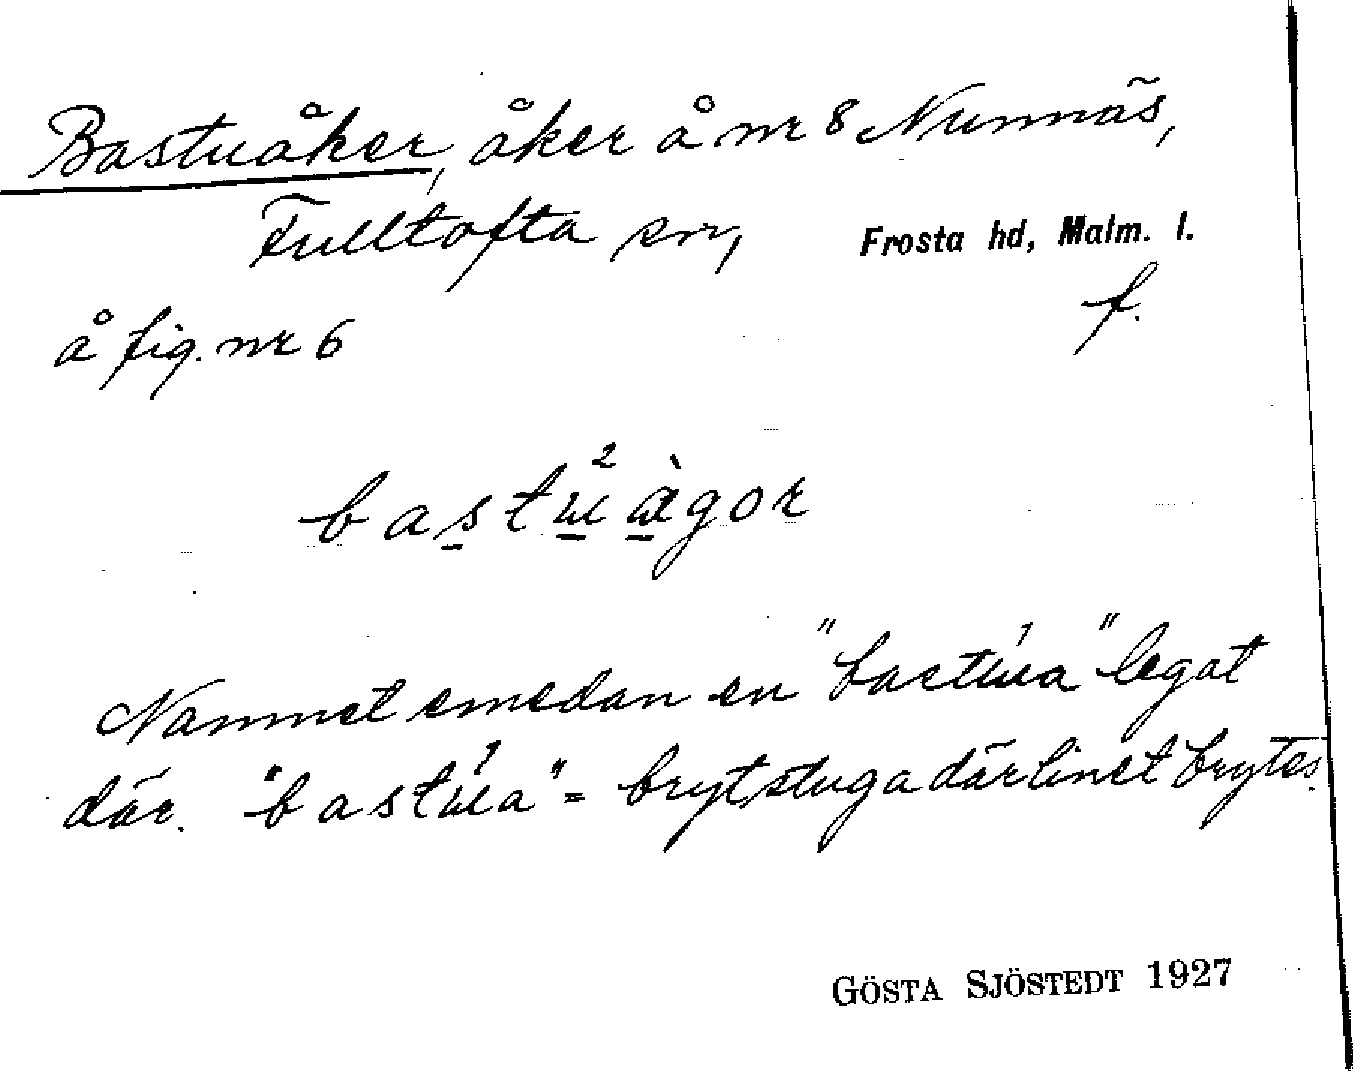 Bastuåker, åker å nr 8 Nunnäs,
Fulltofta sn, Frosta hd, Malm. l.
å fig. nr 6 f.
bastu²àgor
Namnet emedan en "bastu'a" legat
där. "bastu'a" = brytstuga där linet brytes.
GÖSTA SJÖSTEDT 1927